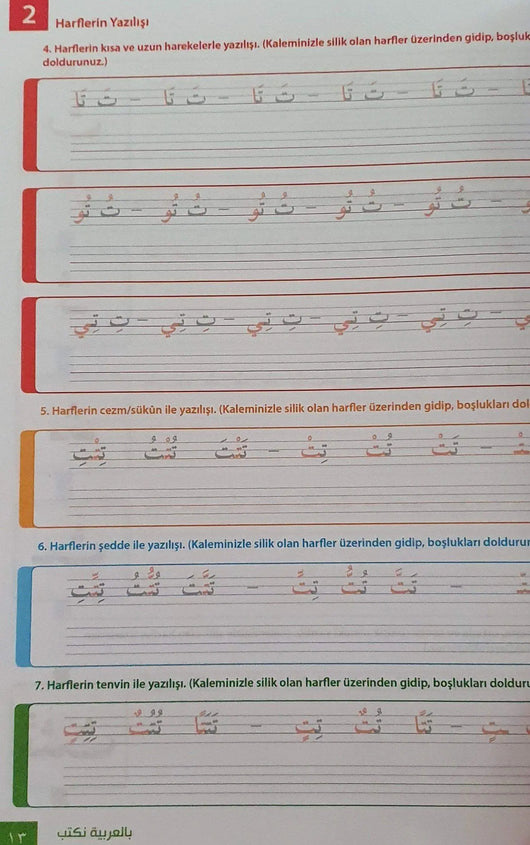 2 Harflerin Yazılışı
4. Harflerin kısa ve uzun harekelerle yazılışı. (Kaleminizle silik olan harfler üzerinden gidip,
doldurunuz.)
تَ تَا – تَ تَا – تَ تَا – تَ تَا – تَ تَا
تُ تُو – تُ تُو – تُ تُو – تُ تُو – تُ تُو
تِ تِي – تِ تِي – تِ تِي – تِ تِي – تِ تِي
5. Harflerin cezm/sükûn ile yazılışı. (Kaleminizle silik olan harfler üzerinden gidip, boşlukları
– تَتْ تُتْ تِتْ – تَتْتَ تُتْتُ تِتْتِ
6. Harflerin şedde ile yazılışı. (Kaleminizle silik olan harfler üzerinden gidip, boşlukları
– تَتَّ تُتُّ تِتِّ – تَتَّتَ تُتُّتُ تِتِّتِ
7. Harflerin tenvin ile yazılışı. (Kaleminizle silik olan harfler üzerinden gidip, boşlukları
– تَتًا تُتٌ تِتٍ – تَتَتًا تُتُتٌ تِتِتٍ
١٣ بالعربية نكتب